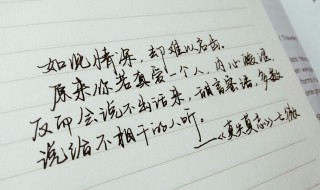 如此情深，却难以启齿。
原来你若真爱一个人，内心酸涩，
反而会说不出话来，甜言蜜语，多数
说给不相干的人听。
——《真朱莫忘》七微